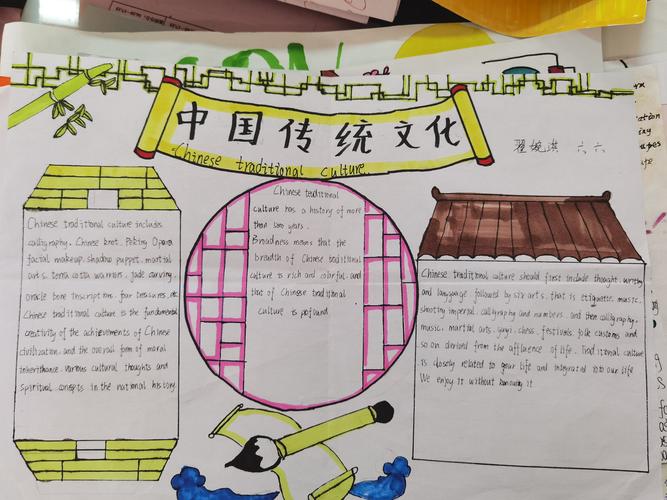 中国传统文化
Chinese traditional culture
六六
Chinese traditional culture includes
calligraphy. Chinese knot. Peking Opera
facial makeup. shadow puppet. martial
arts. terra cotta warriors. jade carving.
oracle bone inscriptions. four treasures. etc
Chinese traditional culture is the fundamental
creativity of the achievements of Chinese
civilization. and the overall form of moral
inheritance. various cultural thoughts and
spiritual in the national history.
Chinese traditional
culture has a history of more
than years.
Broadness means that the
breadth of Chinese traditional
culture is rich and colorful. and
that of Chinese traditional
culture is profound
Chinese traditional culture should first include thought. writing
and language followed by six arts. that is etiquette. music.
shooting imperial. calligraphy and numbers. and then calligraphy.
music. martial arts. chess. festivals. folk customs and
so on derived from the affluence of life. Traditional culture
is closely related to your life and integrated into our life
We enjoy it without it